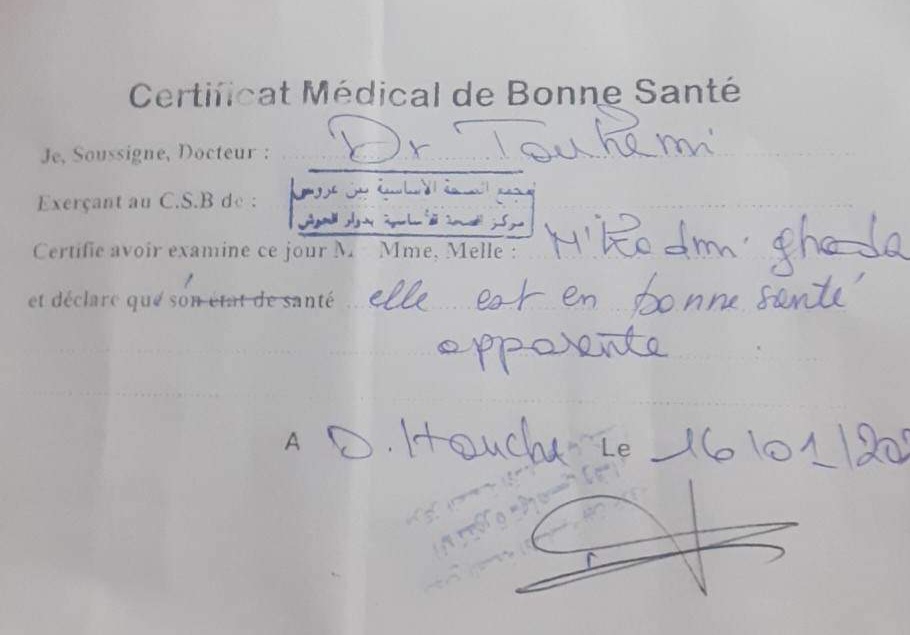 Certificat Médical de Bonne Santé
Je, Soussigne, Docteur : Dr Touhemi
Exerçant au C.S.B de :
مجمع الصحة الأساسية ببن عروس
مركز الصحة الأساسية بدوار الحوش
Certifie avoir examine ce jour M. Mme, Melle : ghada
et déclare que son état de santé elle est en bonne santé
apparente
A D. Houche Le 16/01/202